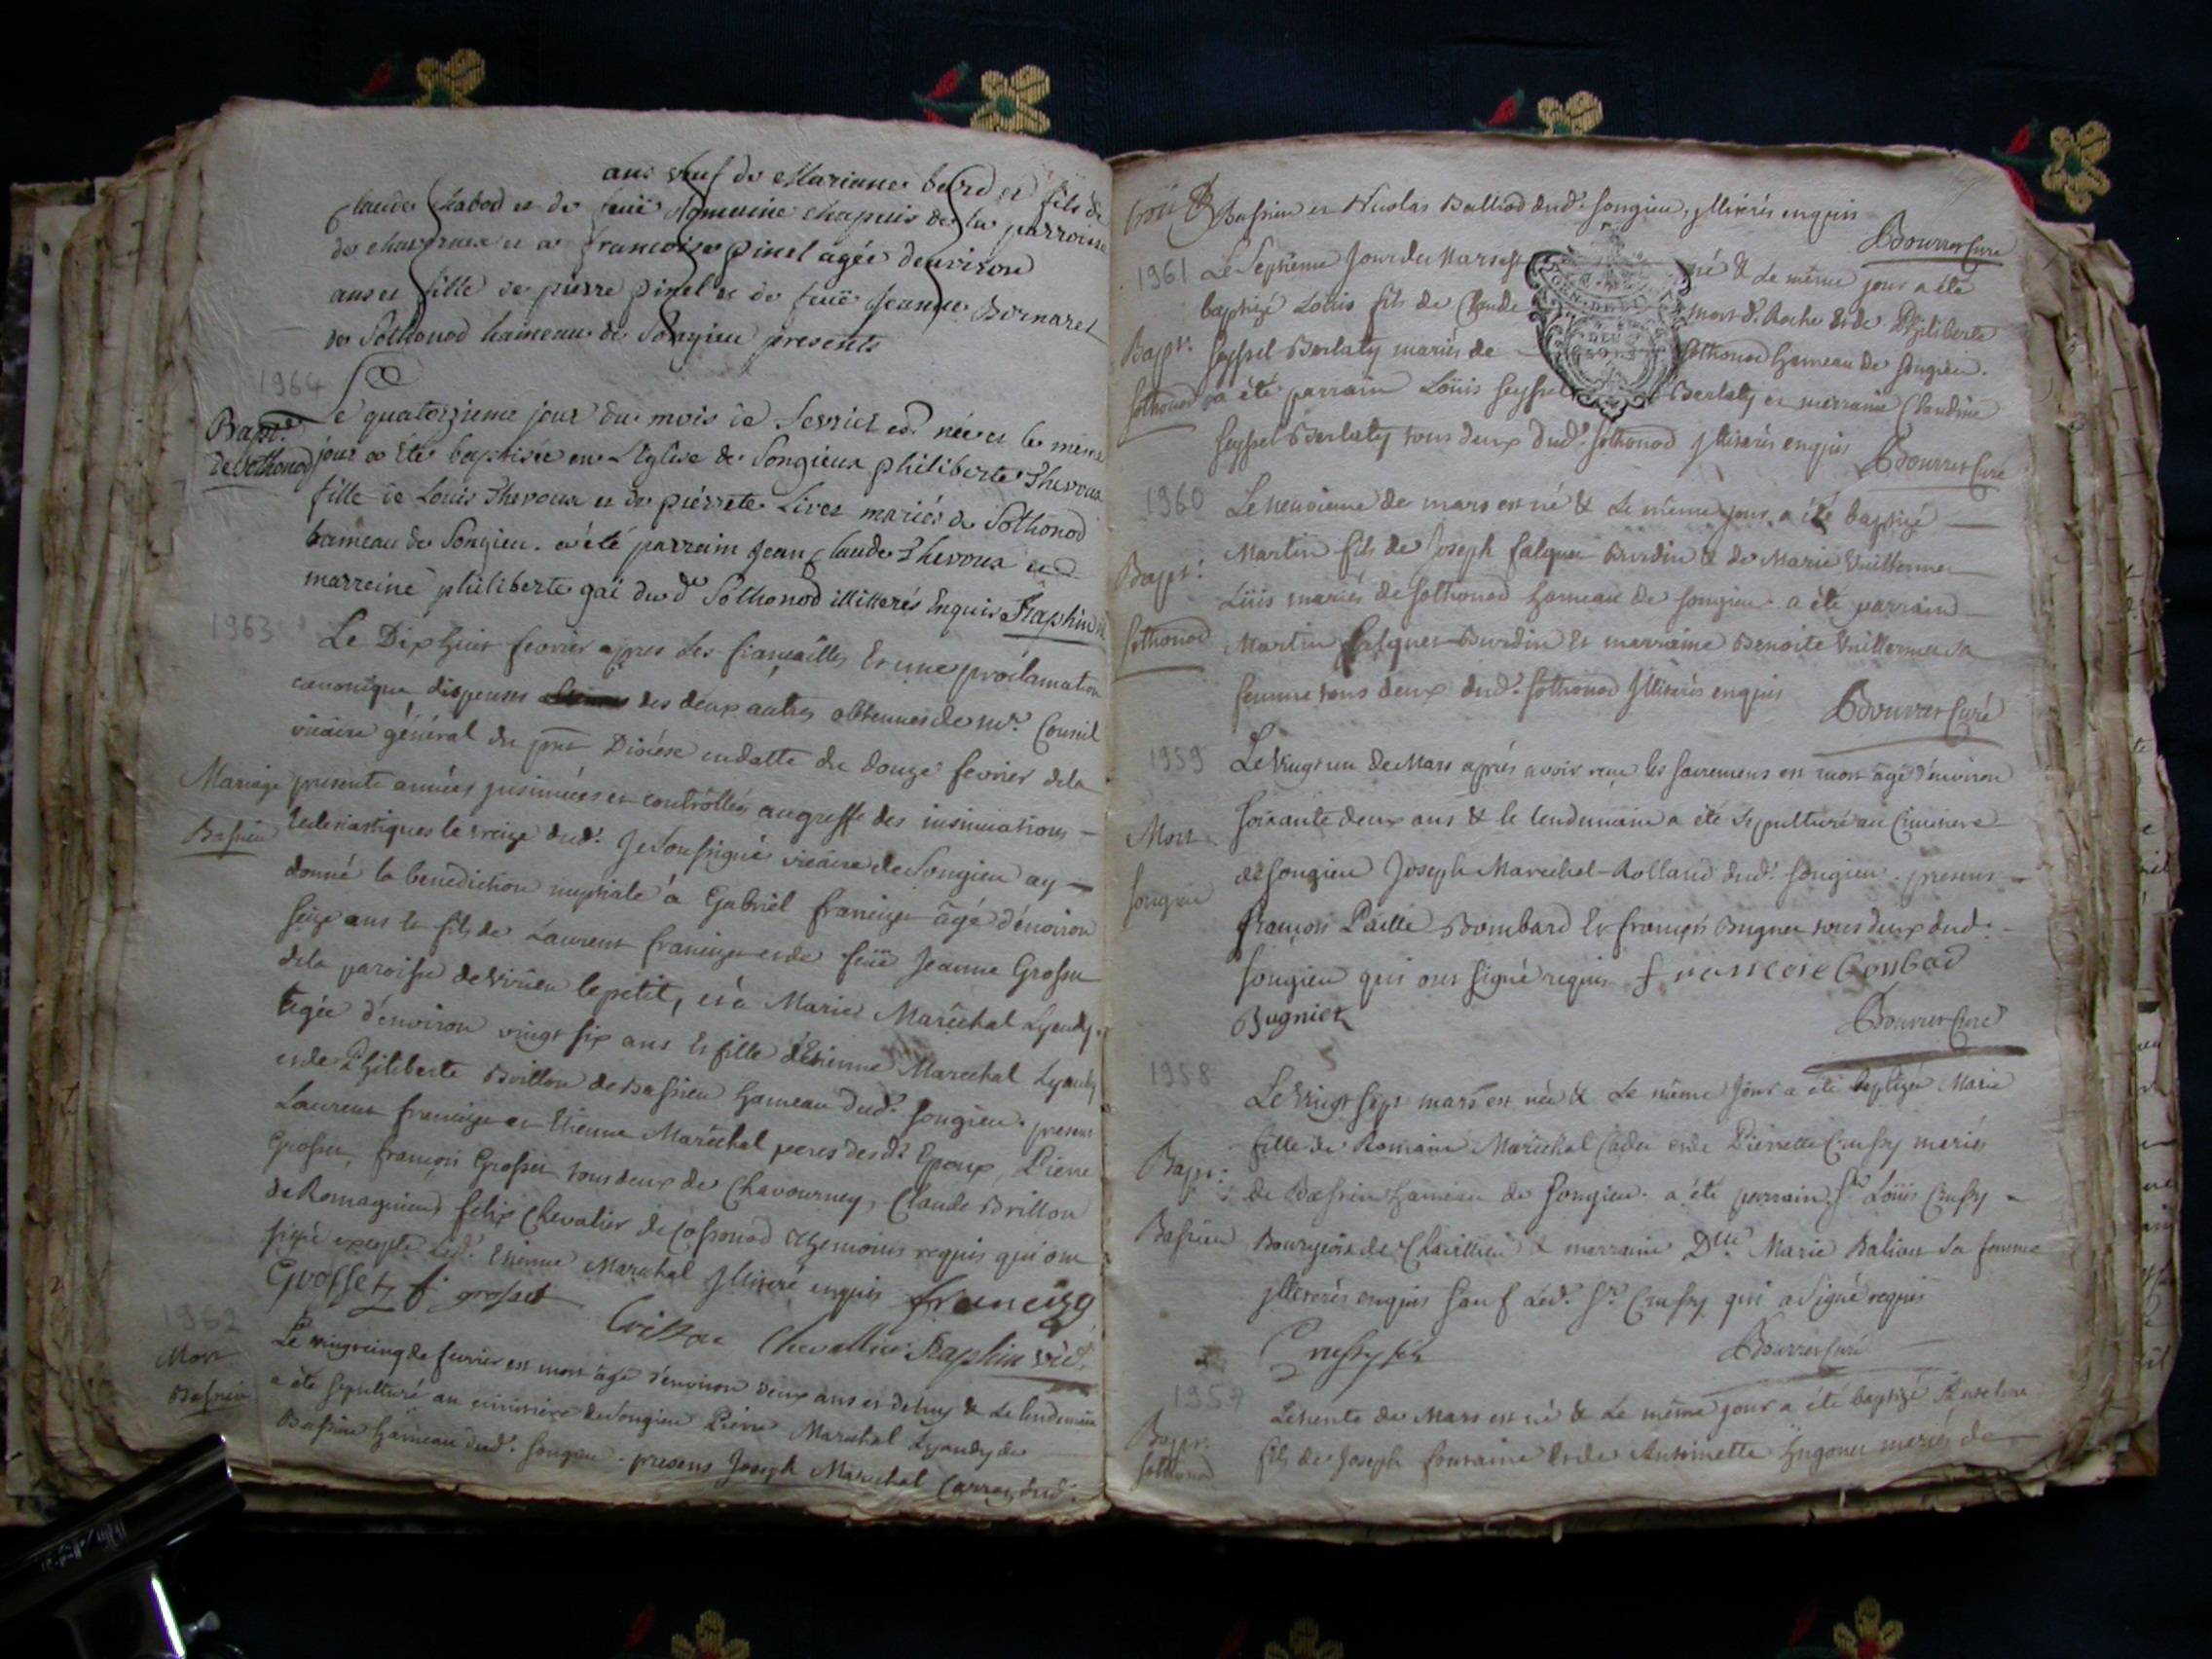 ans veuf de Mariane et fils de
Claude Chabod et de feuë chapuis de la parroisse
de et a francoise pinel agée denviron
ans et fille de pierre pinel et de feuë Jeanne Bornarel
de Sothonod hameau de Songieu presents
1964
Bapt.e
de Sothonod
Le quatorzieme jour du mois de fevrier est née et le même
jour a été baptisée en L'Eglise de Songieux philiberte Thevoux
fille de Louis Thevoux et de pierrete Livet mariés de Sothonod
hameau de Songieu. a été parrain Jean Claude Thevoux et
marreine philiberte gai dud.t Sothonod illitterés Enquis Raphin
1963
Le Dix huit fevrier apres les fiançailles Et une proclamation
canonique, dispenses des deux autres obtenues de mr. Conseil
vicaire général du pnt Diocèse endatte du douze fevrier dela
Mariage
Bassieu
presente année, insinuées et contrôllées au greffe des insinuations
Ecclesiastiques le treize dud.t Je Soussigné vicaire de Songieu ay
donné la benediction nuptiale à Gabriël francizy âgé d'environ
seize ans et fils de Laurent francizy et de feuë Jeanne Grosset
dela paroisse de virieu lepetit, et à Marie Maréchal Lyaudy
âgée d'environ vingt six ans Et fille d'Etienne Marechal Lyaudy
et de Philiberte Brillon de Bassieu hameau dud.t Songieu. presens
Laurent francizy et Etienne Maréchal peres desd.ts Epoux, Pierre
Grosset, françois Grosset tous deux de Chavourney, Claude Brillon
de Romagnieu felix Chevalier de Cossonod temoins requis qui ont
signé excepté led.t Etienne Marechal Illiteré enquis francizy
Grosset f grosset
Brillon Chevallier Raphin vic.
1962
Mort
Bassieu
Le vingt cinq de fevrier est mort âgé d'environ deux ans et demy & Le lendemain
a été sepulturé au cimetière de Songieu Pierre Marechal Lyaudy de
Bassieu hameau dud.t Songieu. presens Joseph Maréchal Carraz dud.t
Bassieu et Nicolas Balliod dud.t Songieu, Illiterés enquis
Bouvret Curé
1961
Bapt.
Sothonod
Le Septième Jour de Mars est né & Le même jour a été
baptizé Louis fils de Claude mort d. Roche Et de Philiberte
Seyssel Berlaty mariés de Sothonod hameau de Songieu.
a été parrain Loüis Seyssel Berlaty et marraine Claudine
Seyssel Berlaty tous deux dud.t Sothonod Illiterés enquis
Bouvret Curé
1960
Bapt:
Sothonod
Le neuvieme de mars est né & Le même jour a été baptizé
Martin fils de Joseph falquet Burdin & de Marie Vuillermet
Luis mariés de Sothonod hameau de Songieu. a été parrain
Martin falquet Burdin Et marraine Benoite Vuillermet Sa
femme tous deux dud.t Sothonod Illiterés enquis
Bouvret Curé
1959
Mort
Songieu
Le Vingt un de Mars après avoir reçu les Sacremens est mort âgé d'environ
soixante deux ans & le lendemain a été sepulturé au Cimetiere
de Songieu Joseph Marechal-Rolland dud.t Songieu. presens
françois Paille Bombard Et françois Bugnet tous deux dud.
Songieu qui ont signé requis francoie Bonbad
Bugniet
Bouvret Curé
1958
Bapt:
Bassieu
Le Vingt Sept mars est née & Le même Jour a été baptizée Marie
fille de Romain Maréchal Cadet et de Pierrette Crussy mariés
de Bassieu hameau de Songieu. a été parrain S.r Loüis Crussy
Bourgeois de & marraine D.lle Marie Balivet Sa femme
Illiterés enquis Sauf Led.t S.r Crussy qui a Signé requis
Crussy
Bouvret Curé
1957
Bapt.
Sothonod
Le trente de Mars est né & Le même jour a été baptizé Anselme
fils de Joseph fontaine Et de Antoinette hugonet mariés de